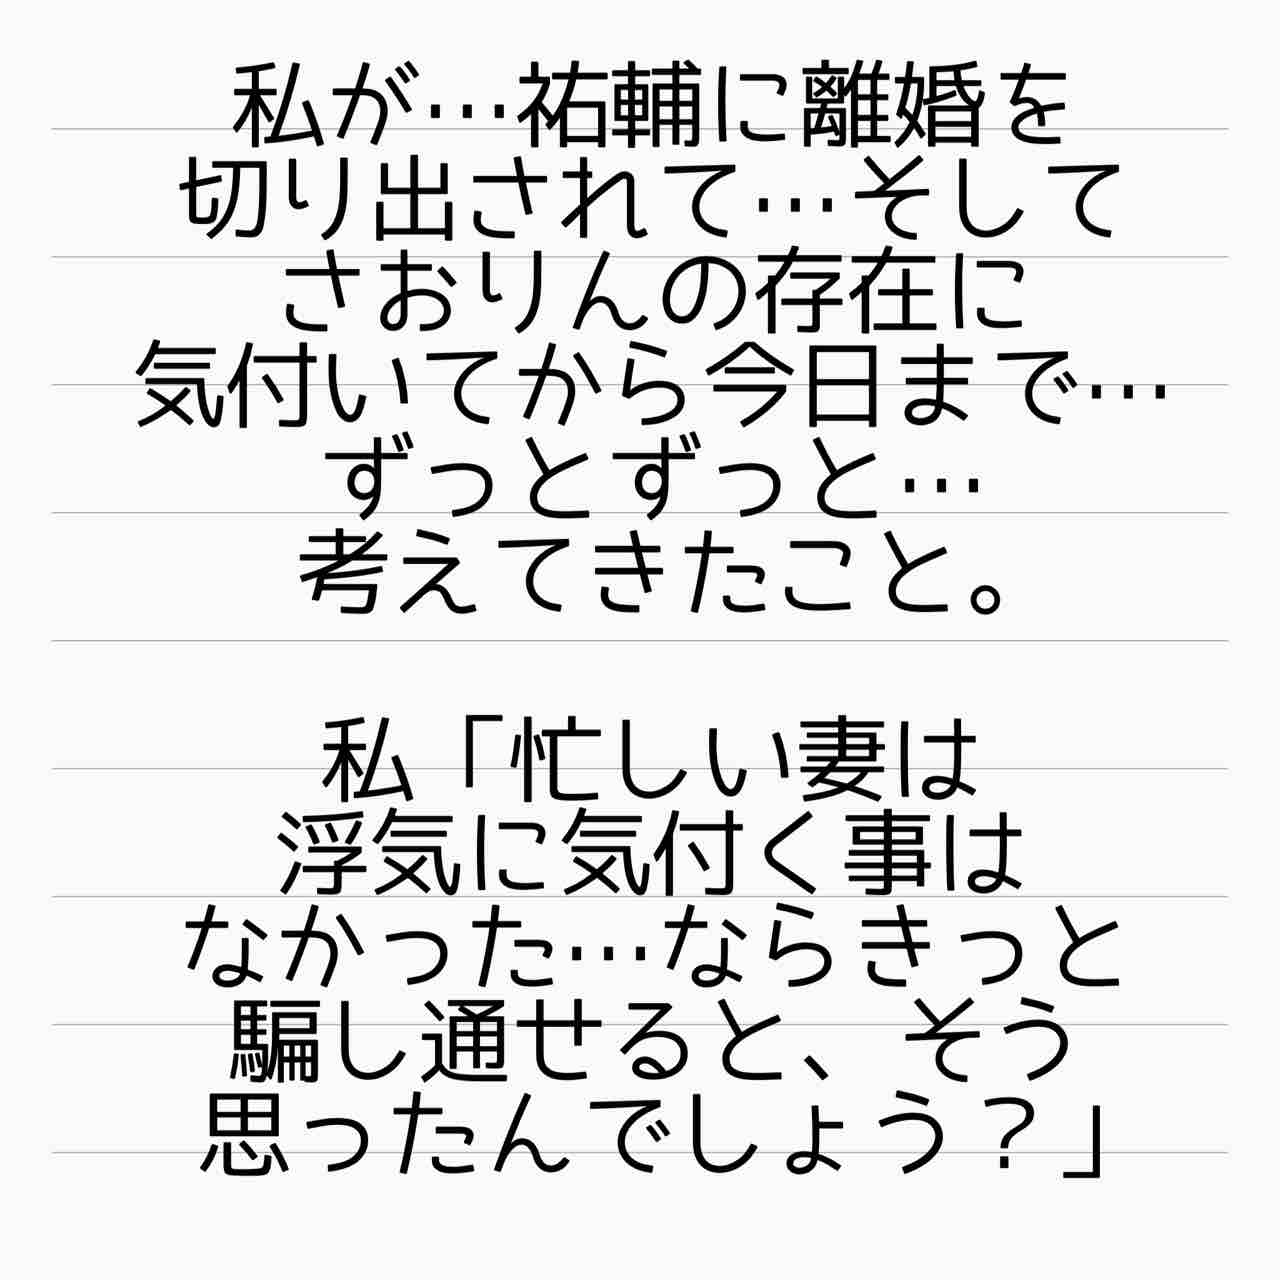 私が…祐輔に離婚を
切り出されて…そして
さおりんの存在に
気付いてから今日まで…
ずっとずっと…
考えてきたこと。
私「忙しい妻は
浮気に気付く事は
なかった…ならきっと
騙し通せると、そう
思ったんでしょう？」